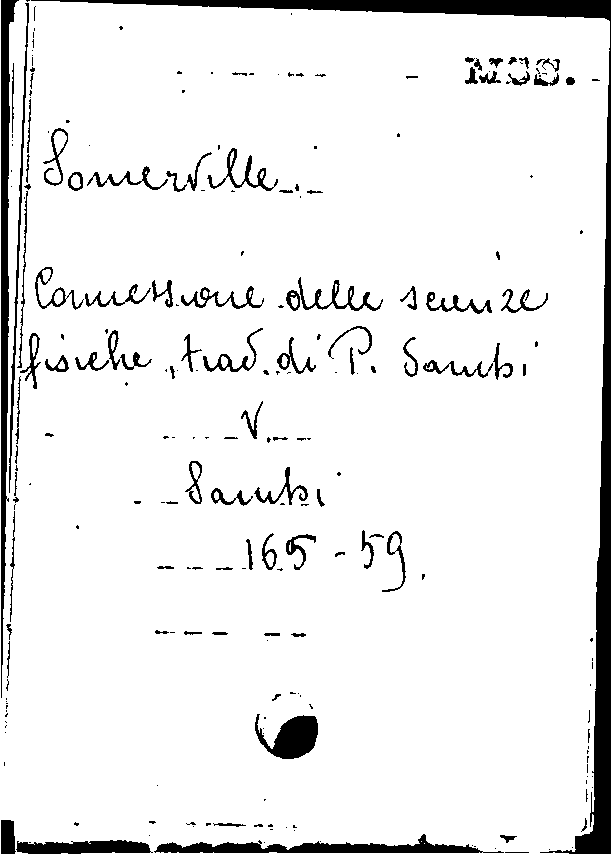 MSS.
Somerville.
Connessione delle scienze
fisiche, trad. di P. Sambi
V.
Sambi
165-59.